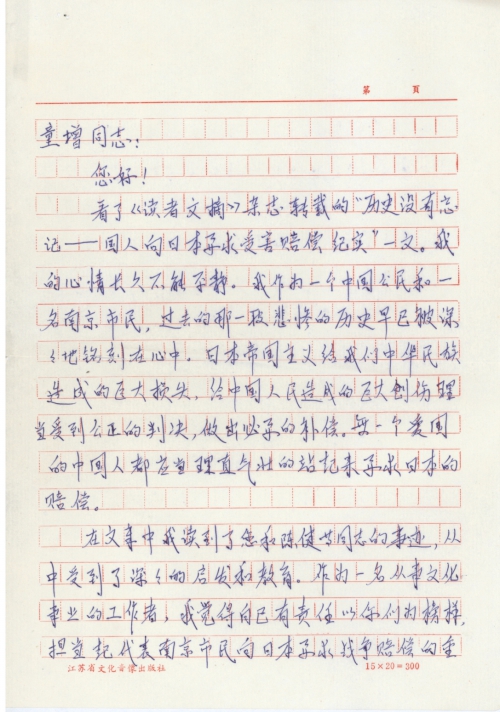 第 頁
童增同志:
您好!
看了《读者文摘》杂志转载的"历史没有忘
记——国人向日本要求受害赔偿纪实"一文。我
的心情长久不能平静。我作为一个中国公民和一
名南京市民,过去的那一段悲惨的历史早已被深
々地铭刻在心中。日本帝国主义给我们中华民族
造成的巨大损失,给中国人民造成的巨大创伤理
当受到公正的判决,做出必要的补偿。每一个爱国
的中国人都应当理直气壮的站起来要求日本的
赔偿。
在文章中我读到了您和陈健等同志的事迹,从
中受到了深々的启发和教育。作为一名从事文化
事业的工作者,我觉得自己有责任以你们为榜样,
担当起代表南京市民向日本要求战争赔偿的重
江苏省文化音像出版社 15×20=300